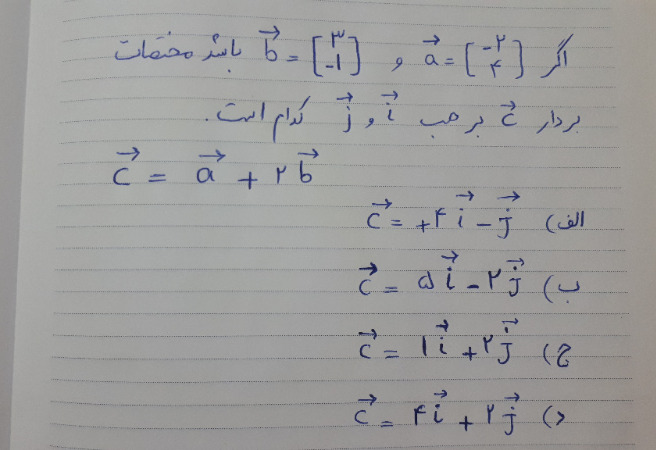 اگر a⃗ = [-۲ ۴] و b⃗ = [۳ -۱] باشد مختصات
بردار c⃗ برحسب i⃗ و j⃗ کدام است.
c⃗ = a⃗ + ۲b⃗
الف) c⃗ = +۴i⃗ - j⃗
ب) c⃗ = ۵i⃗ - ۲j⃗
ج) c⃗ = ۱i⃗ + ۲j⃗
د) c⃗ = ۴i⃗ + ۲j⃗